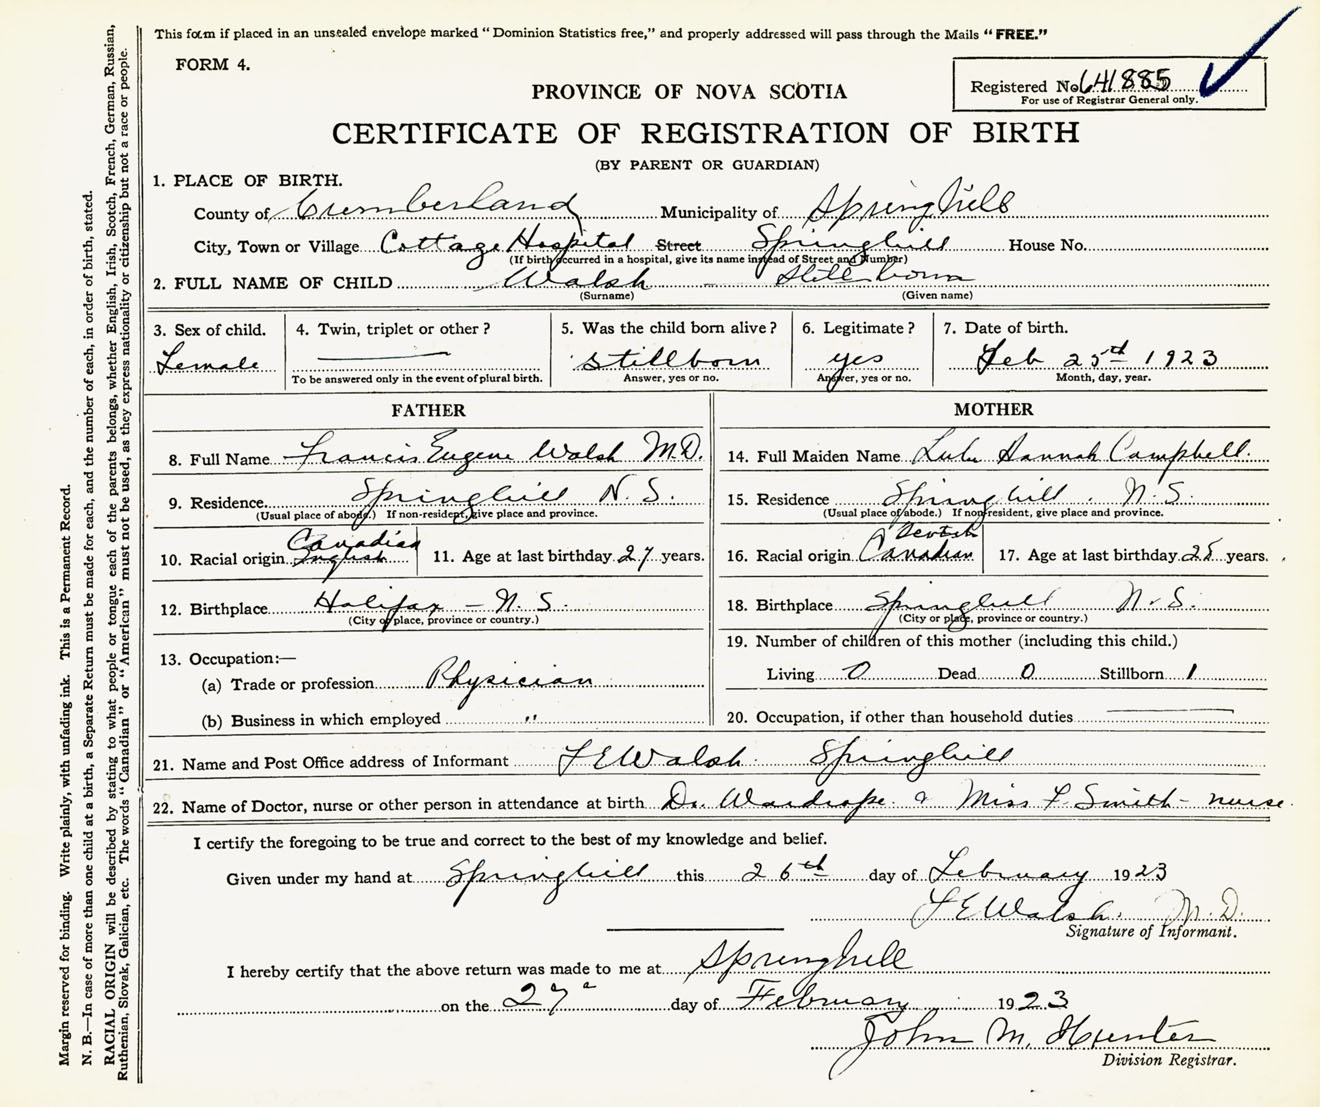 This form if placed in an unsealed envelope marked "Dominion Statistics free," and properly addressed will pass through the Mails "FREE."
FORM 4.
Registered No. 641885
For use of Registrar General only.
PROVINCE OF NOVA SCOTIA
CERTIFICATE OF REGISTRATION OF BIRTH
(BY PARENT OR GUARDIAN)
1. PLACE OF BIRTH.
County of Cumberland Municipality of Springhill
City, Town or Village Cottage Hospital Street Springhill House No.
(If birth occurred in a hospital, give its name instead of Street and Number)
2. FULL NAME OF CHILD Walsh - Still born
(Surname) (Given name)
3. Sex of child. 4. Twin, triplet or other? 5. Was the child born alive? 6. Legitimate? 7. Date of birth.
Female stillborn yes Feb 25th 1923
To be answered only in the event of plural birth. Answer, yes or no. Answer, yes or no. Month, day, year.
FATHER
8. Full Name Francis Eugene Walsh M.D.
9. Residence Springhill N.S.
(Usual place of abode.) If non-resident, give place and province.
Canadian
10. Racial origin English 11. Age at last birthday 27 years.
12. Birthplace Halifax - N.S.
(City or place, province or country.)
13. Occupation:—
(a) Trade or profession Physician
(b) Business in which employed "
MOTHER
14. Full Maiden Name Lulu Hannah Campbell.
15. Residence Springhill. N.S.
(Usual place of abode.) If non-resident, give place and province.
Scotch
16. Racial origin Canadian 17. Age at last birthday 25 years.
18. Birthplace Springhill N.S.
(City or place, province or country.)
19. Number of children of this mother (including this child.)
Living 0 Dead 0 Stillborn 1
20. Occupation, if other than household duties
21. Name and Post Office address of Informant F E Walsh. Springhill
22. Name of Doctor, nurse or other person in attendance at birth Dr. Wardrope. & Miss F. Smith - nurse.
I certify the foregoing to be true and correct to the best of my knowledge and belief.
Given under my hand at Springhill this 26th day of February 1923
F E Walsh. M.D.
Signature of Informant.
I hereby certify that the above return was made to me at Springhill
on the 27 day of February 1923
John M. Hunter
Division Registrar.
Margin reserved for binding. Write plainly, with unfading ink. This is a Permanent Record.
N. B.—In case of more than one child at a birth, a Separate Return must be made for each, and the number of each, in order of birth, stated.
RACIAL ORIGIN will be described by stating to what people or tongue each of the parents belongs, whether English, Irish, Scotch, French, German, Russian,
Ruthenian, Slovak, Galician, etc. The words "Canadian" or "American" must not be used, as they express nationality or citizenship but not a race or people.